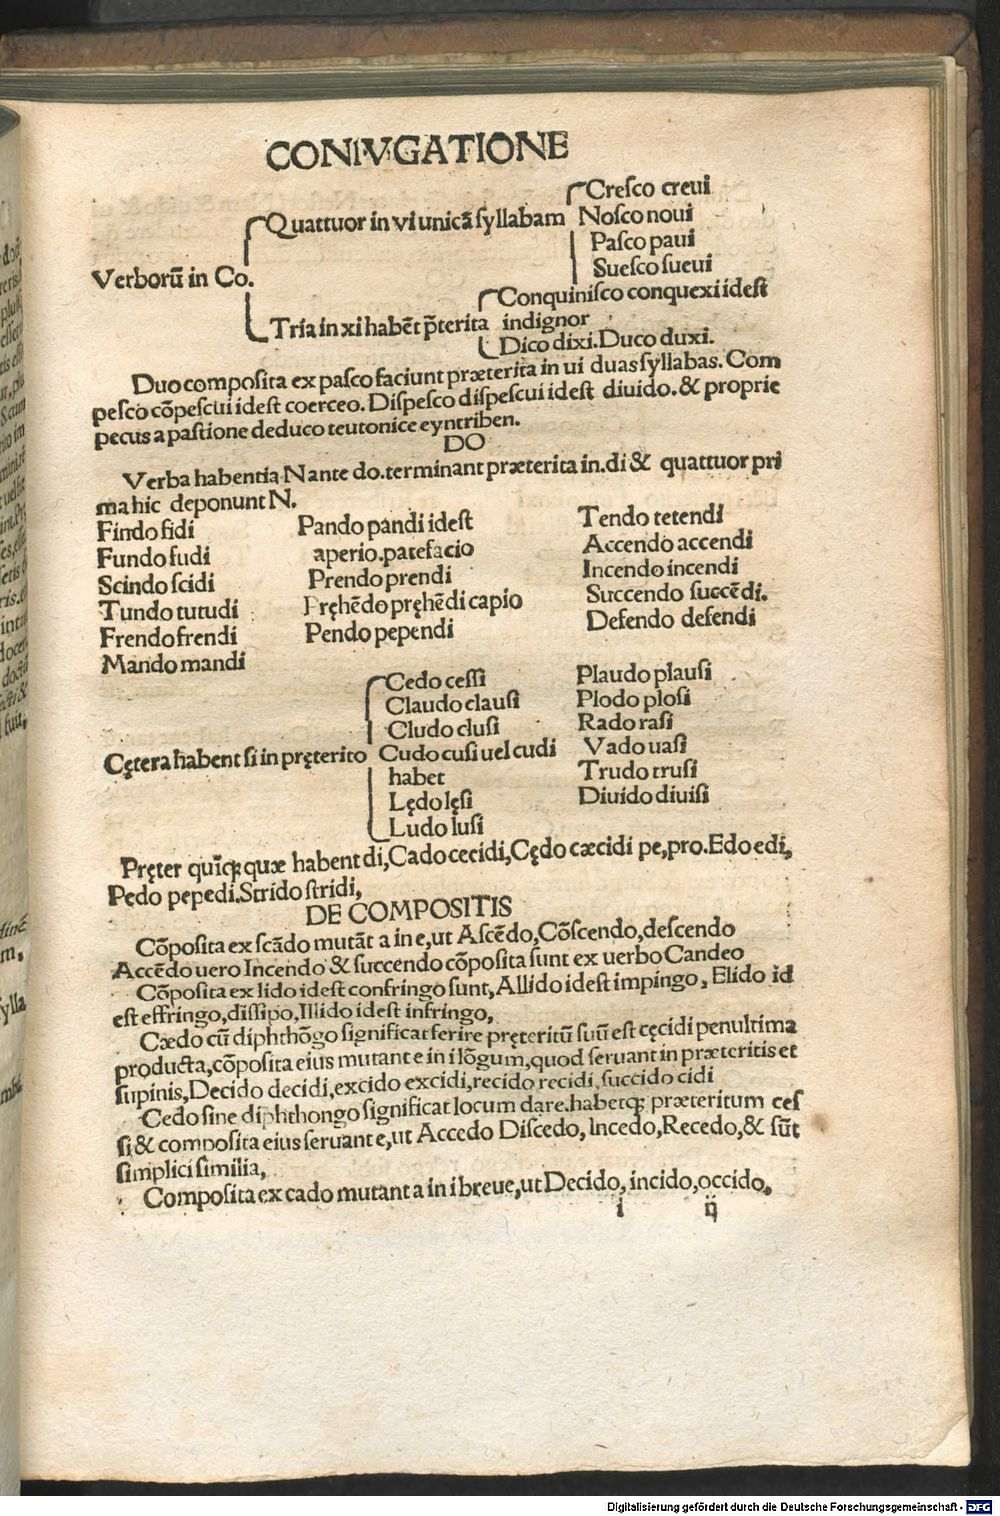 CONIVGATIONE
Verborū in Co.
Quattuor in vi unicā syllabam
Cresco creui
Nosco noui
Pasco paui
Suesco sueui
Tria in xi habēt p̄terita
Conquinisco conquexi idest
indignor
Dico dixi. Duco duxi.
Duo composita ex pasco faciunt præterita in ui duas syllabas. Com
pesco cōpescui idest coerceo. Dispesco dispescui idest diuido. & proprie
pecus a pastione deduco teutonice eyntriben.
DO
Verba habentia N ante do. terminant præterita in. di & quattuor pri
ma hic deponunt N.
Findo fidi
Fundo fudi
Scindo scidi
Tundo tutudi
Frendo frendi
Mando mandi
Pando pandi idest
aperio. patefacio
Prendo prendi
Pręhēdo pręhēdi capio
Pendo pependi
Tendo tetendi
Accendo accendi
Incendo incendi
Succendo succēdi.
Defendo defendi
Cętera habent si in pręterito
Cedo cessi
Claudo clausi
Cludo clusi
Cudo cusi uel cudi
habet
Lędo lęsi
Ludo lusi
Plaudo plausi
Plodo plosi
Rado rasi
Vado uasi
Trudo trusi
Diuido diuisi
Pręter quīqꝫ quæ habent di, Cado cecidi, Cędo cæcidi pe, pro. Edo edi,
Pedo pepedi. Strido stridi,
DE COMPOSITIS
Cōposita ex scādo mutāt a in e, ut Ascēdo, Cōscendo, descendo
Accēdo uero Incendo & succendo cōposita sunt ex uerbo Candeo
Cōposita ex lido idest confringo sunt, Allido idest impingo, Elido id
est effringo, dissipo, Illido idest infringo,
Cædo cū diphthōgo significat ferire pręteritū suū est cęcidi penultima
producta, cōposita eius mutant e in i lōgum, quod seruant in præteritis et
supinis, Decido decidi, excido excidi, recido recidi, succido cidi
Cedo sine diphthongo significat locum dare. habetqꝫ præteritum ces
si & composita eius seruant e, ut Accedo Discedo, Incedo, Recedo, & sūt
simplici similia,
Composita ex cado mutant a in i breue, ut Decido, incido, occido,
i ij
Digitalisierung gefördert durch die Deutsche Forschungsgemeinschaft - DFG